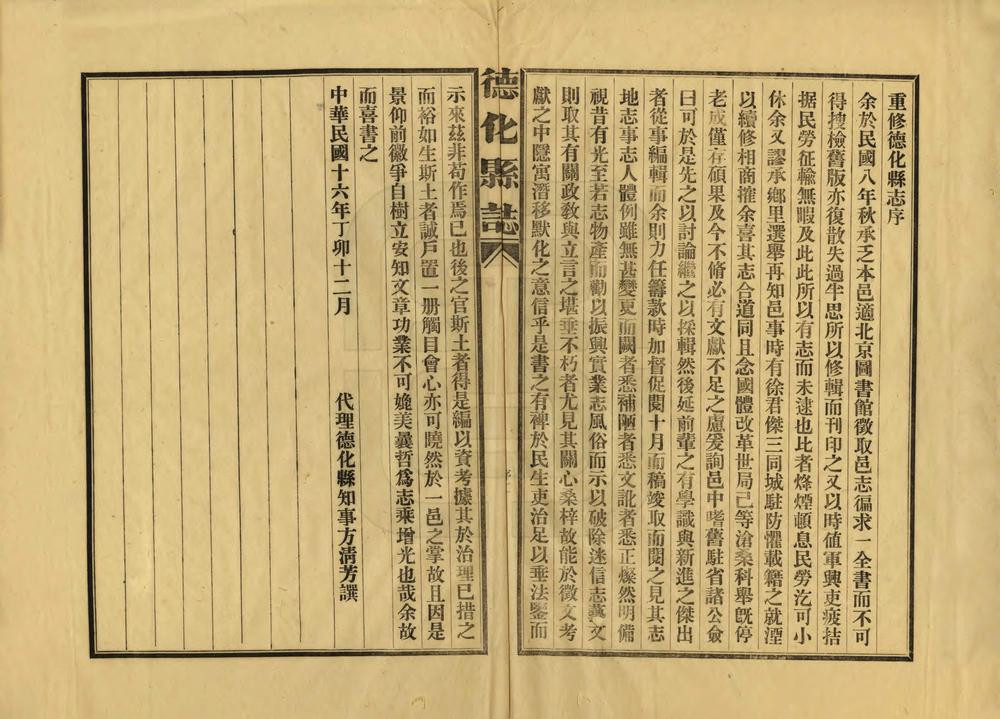 重修德化縣志序
余於民國八年秋承乏本邑適北京圖書館徵取邑志徧求一全書而不可
得搜檢舊版亦復散失過半思所以修輯而刊印之又以時値軍興吏疲拮
据民勞征輸無暇及此此所以有志而未逮也比者烽煙頓息民勞汔可小
休余又謬承鄉里選舉再知邑事時有徐君傑三同城駐防懼載籍之就湮
以續修相商搉余喜其志合道同且念國體改革世局已等滄桑科舉旣停
老成僅存碩果及今不脩必有文獻不足之慮爰詢邑中嗜舊駐省諸公僉
曰可於是先之以討論繼之以採輯然後延前輩之有學識與新進之傑出
者從事編輯而余則力任籌款時加督促閱十月而稿竣取而閱之見其志
地志事志人體例雖無甚變更而闕者悉補陋者悉文訛者悉正燦然明備
視昔有光至若志物產而勸以振興實業志風俗而示以破除迷信志藝文
則取其有關政敎與立言之堪垂不朽者尤見其關心桑梓故能於徵文考
獻之中隱寓潛移默化之意信乎是書之有裨於民生吏治足以垂法鑒而
德化縣誌
序
示來茲非苟作焉已也後之官斯土者得是編以資考據其於治理已措之
而裕如生斯土者誠戶置一册觸目會心亦可曉然於一邑之掌故且因是
景仰前徽爭自樹立安知文章功業不可媲美曩哲爲志乘增光也哉余故
而喜書之
中華民國十六年丁卯十二月
代理德化縣知事方淸芳譔